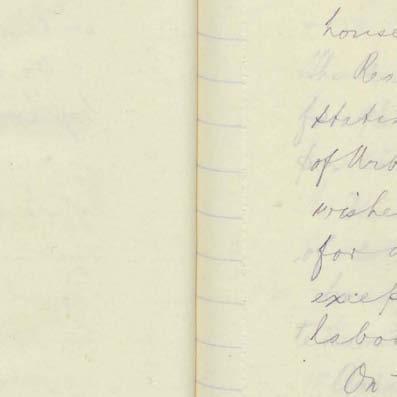 house
The Res
Statis
of Urb
wishe
for a
excep
labo
On